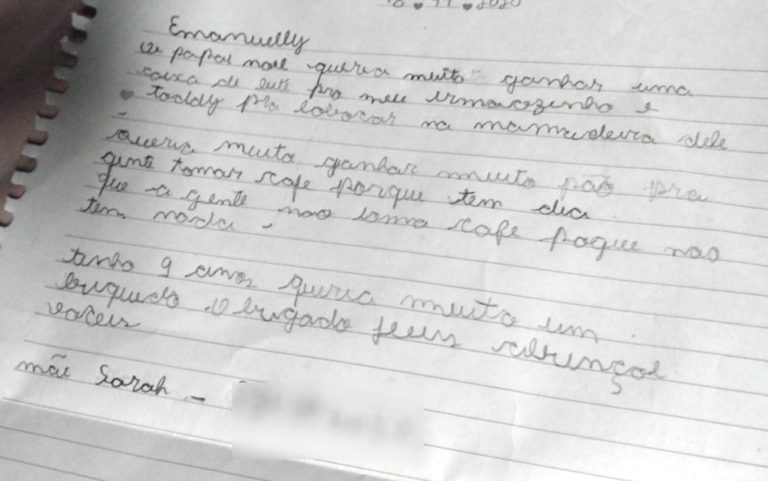 Emanuelly
papai noel queria muito ganhar uma
caixa de leite pro meu irmaozinho e
toddy pra colocar na mamadeira dele
queria muito ganhar muito pão pra
gente tomar cafe porque tem dia
que a gente nao toma cafe poque nao
tem nada.
tenho 9 anos queria muito um
briquedo obrigado jeus abençoe
voceis
mãe Sarah -